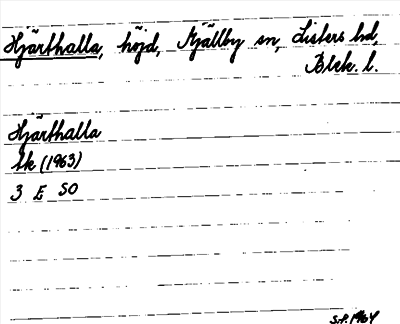 Hjärthalla, höjd, Mjällby sn, Listers hd,
Blek. l.
Hjärthalla
Ek (1963)
3 E SO
S.P. 1964